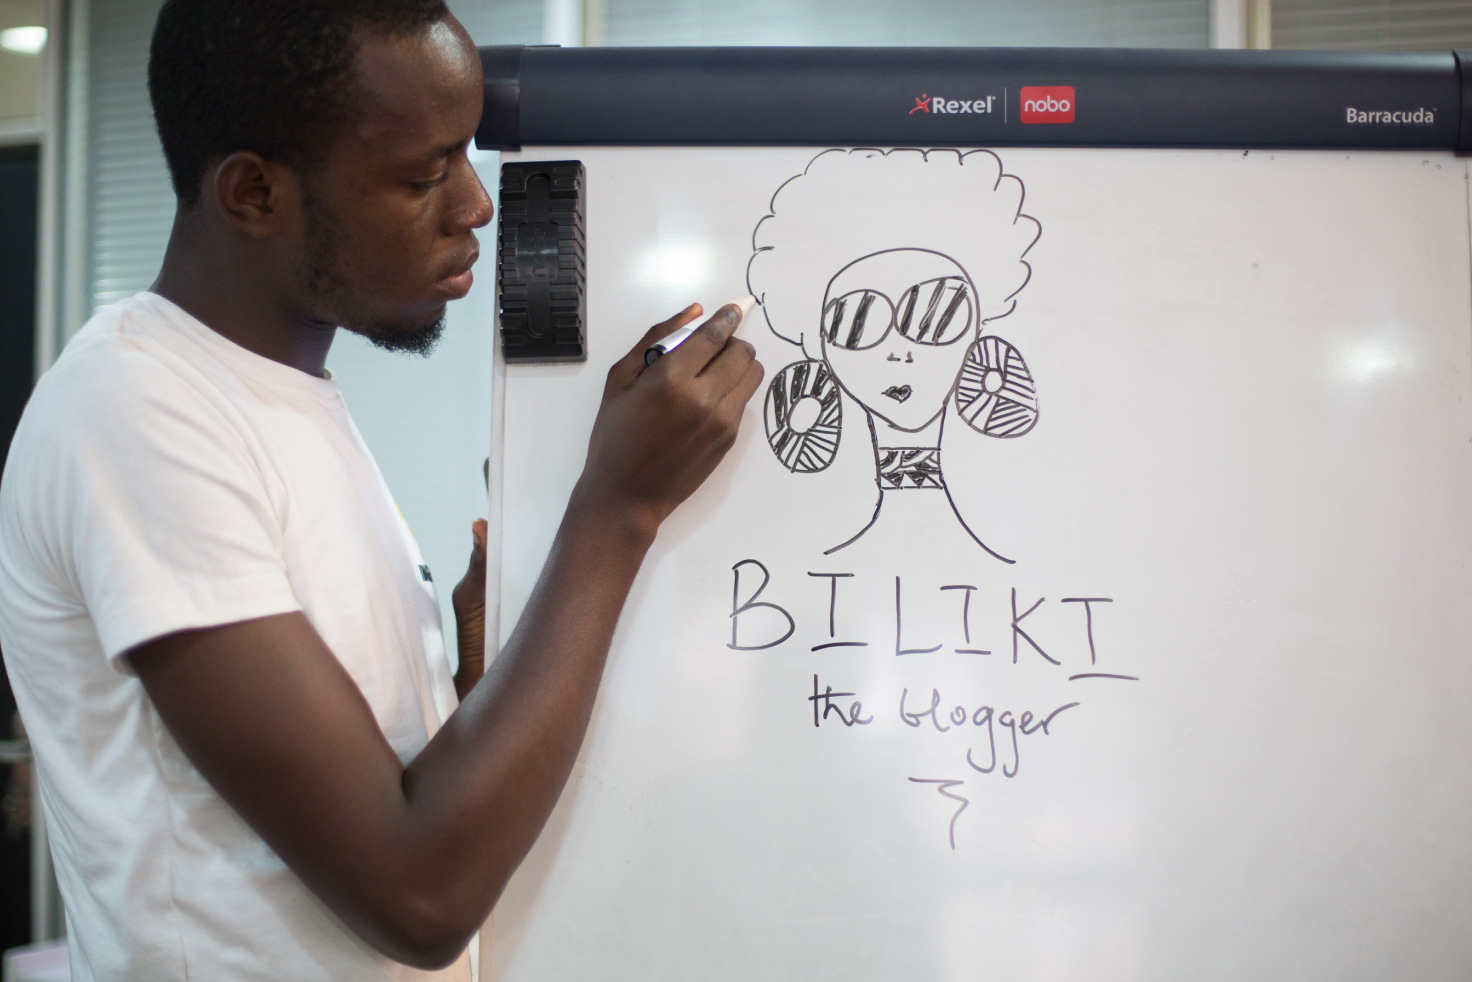 Rexel nobo
Barracuda
BILIKI
the blogger